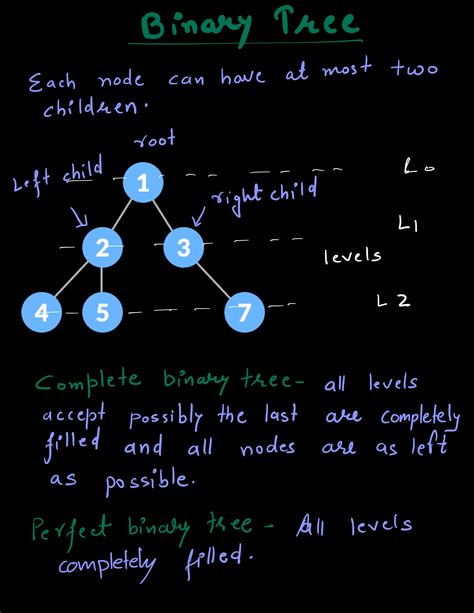 Binary Tree
Each node can have at most two
children.
root
Left child
1
L0
right child
2
3
L1
levels
4
5
7
L2
Complete binary tree- all levels
accept possibly the last are completely
filled and all nodes are as left
as possible.
Perfect binary tree - All levels
completely filled.